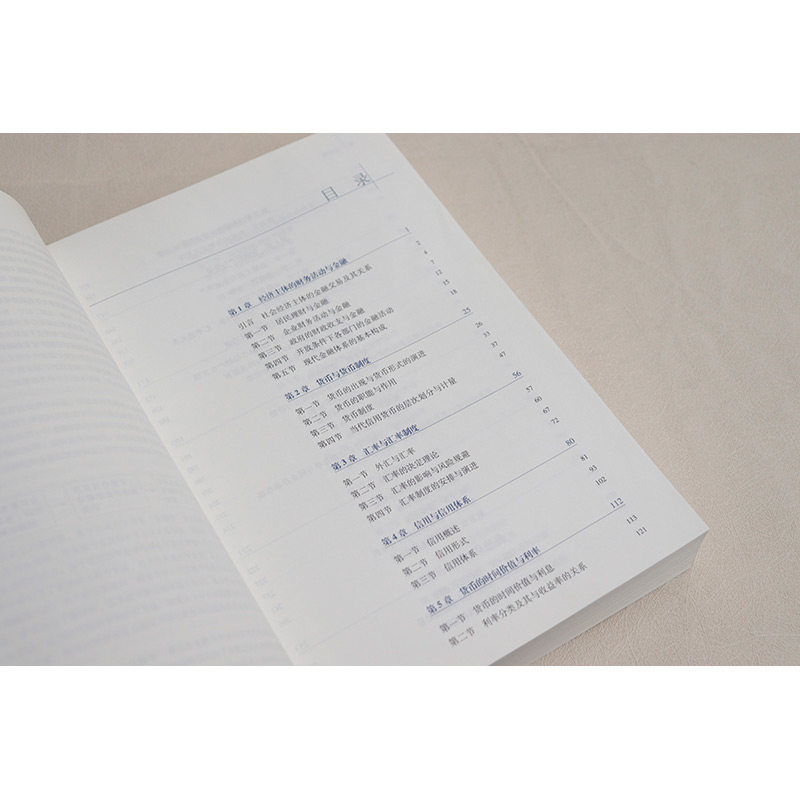 目 录
第1章 经济主体的财务活动与金融 1
引言 社会经济主体的金融交易及其关系 2
第一节 居民理财与金融 4
第二节 企业财务活动与金融 7
第三节 政府的财政收支与金融 12
第四节 开放条件下各部门的金融活动 15
第五节 现代金融体系的基本构成 18
第2章 货币与货币制度 25
第一节 货币的出现与货币形式的演进 26
第二节 货币的职能与作用 33
第三节 货币制度 37
第四节 当代信用货币的层次划分与计量 47
第3章 汇率与汇率制度 56
第一节 外汇与汇率 57
第二节 汇率的决定理论 60
第三节 汇率的影响与风险规避 67
第四节 汇率制度的安排与演进 72
第4章 信用与信用体系 80
第一节 信用概述 81
第二节 信用形式 93
第三节 信用体系 102
第5章 货币的时间价值与利率 112
第一节 货币的时间价值与利息 113
第二节 利率分类及其与收益率的关系 121